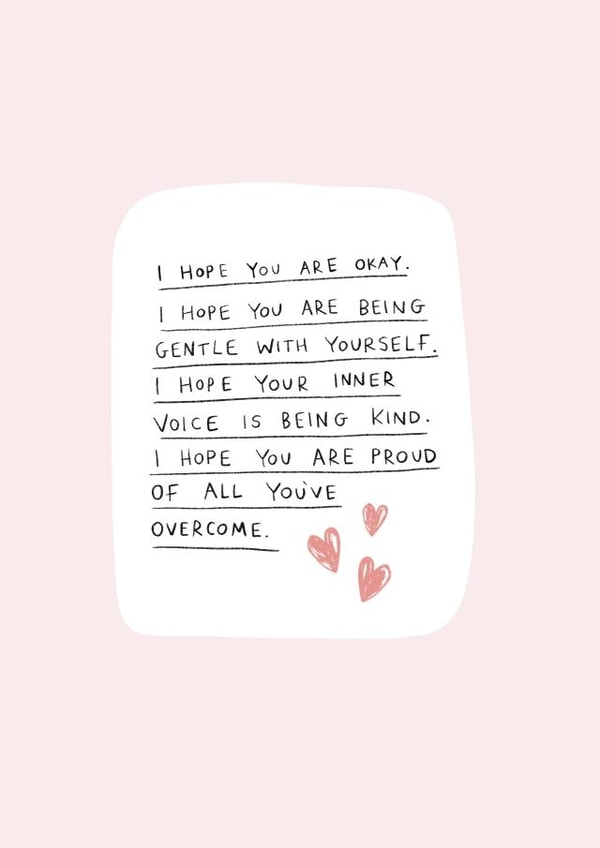 I HOPE YOU ARE OKAY.
I HOPE YOU ARE BEING
GENTLE WITH YOURSELF.
I HOPE YOUR INNER
VOICE IS BEING KIND.
I HOPE YOU ARE PROUD
OF ALL YOU'VE
OVERCOME.